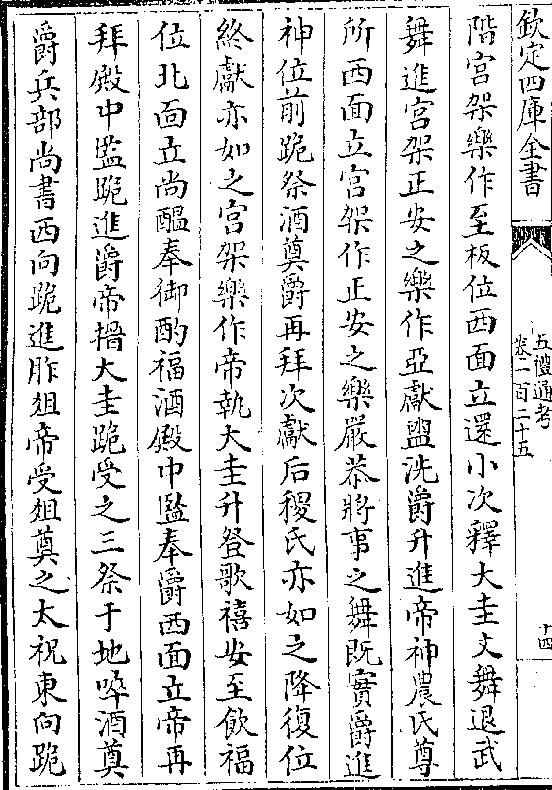 欽定四庫全書
五禮通考
卷二百二十五
十四
階宮架樂作至板位西面立還小次釋大圭文舞退武
舞進宮架正安之樂作亞獻盥洗爵升進帝神農氏尊
所西面立宮架作正安之樂嚴恭將事之舞既實爵進
神位前跪祭酒奠爵再拜次獻后稷氏亦如之降復位
終獻亦如之宮架樂作帝執大圭升登歌禧安至飲福
位北面立尚醞奉御酌福酒殿中監奉爵西面立帝再
拜殿中監跪進爵帝搢大圭跪受之三祭于地啐酒奠
爵兵部尚書西向跪進胙俎帝受俎奠之太祝東向跪